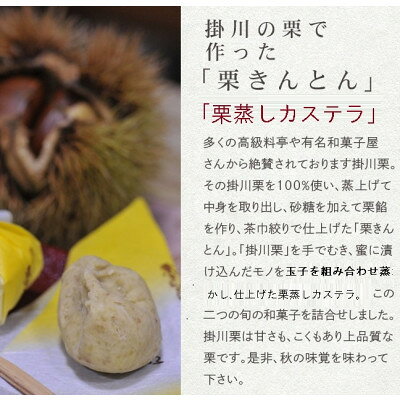 掛川の栗で
作った
「栗きんとん」
「栗蒸しカステラ」
多くの高級料亭や有名和菓子屋
さんから絶賛されております掛川栗。
その掛川栗を100%使い、蒸上げて
中身を取り出し、砂糖を加えて栗餡
を作り、茶巾絞りで仕上げた「栗きん
とん」。「掛川栗」を手でむき、蜜に漬
け込んだモノを玉子を組み合わせ蒸
かし、仕上げた栗蒸しカステラ。この
二つの旬の和菓子を詰合せしました。
掛川栗は甘さも、こくもあり上品質な
栗です。是非、秋の味覚を味わって
下さい。